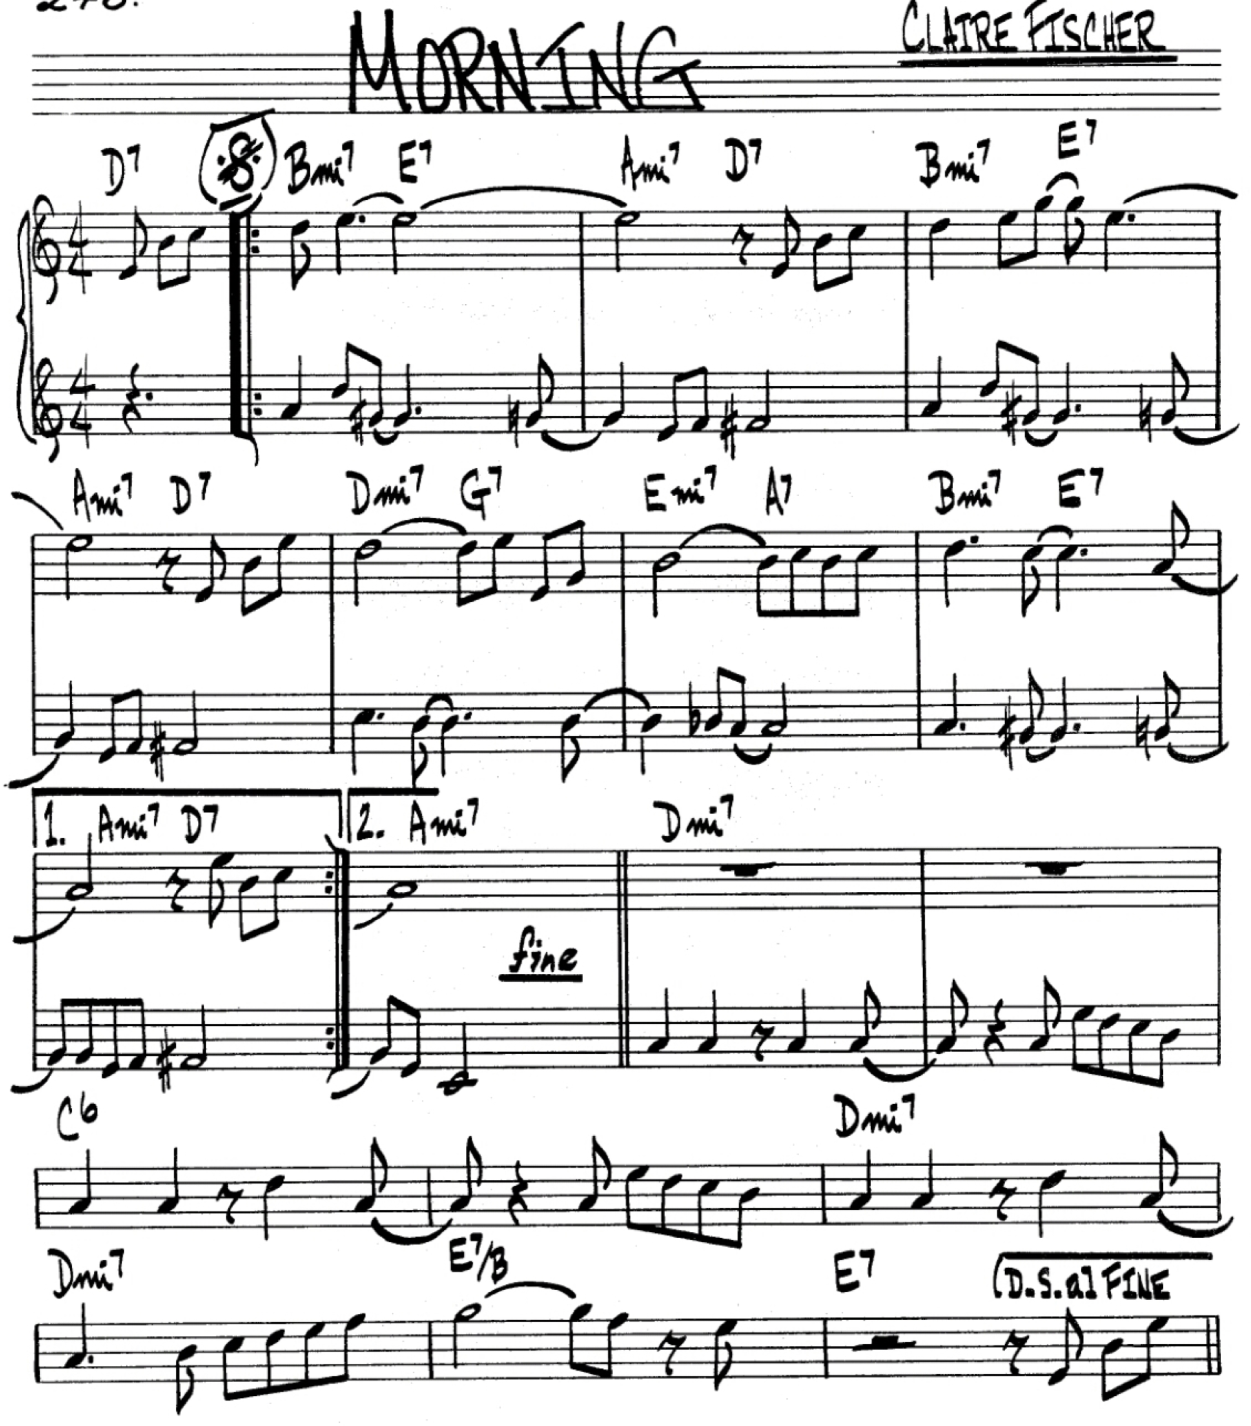 MORNING
CLAIRE FISCHER
D7 Bmi7 E7 Ami7 D7 Bmi7 E7
4 4
4 4
Ami7 D7 Dmi7 G7 Emi7 A7 Bmi7 E7
1. Ami7 D7 2. Ami7 Dmi7
fine
C6 Dmi7
Dmi7 E7/B E7 D.S. al FINE